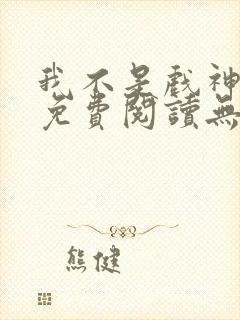 我不是戲神
免費閱讀無
熊健